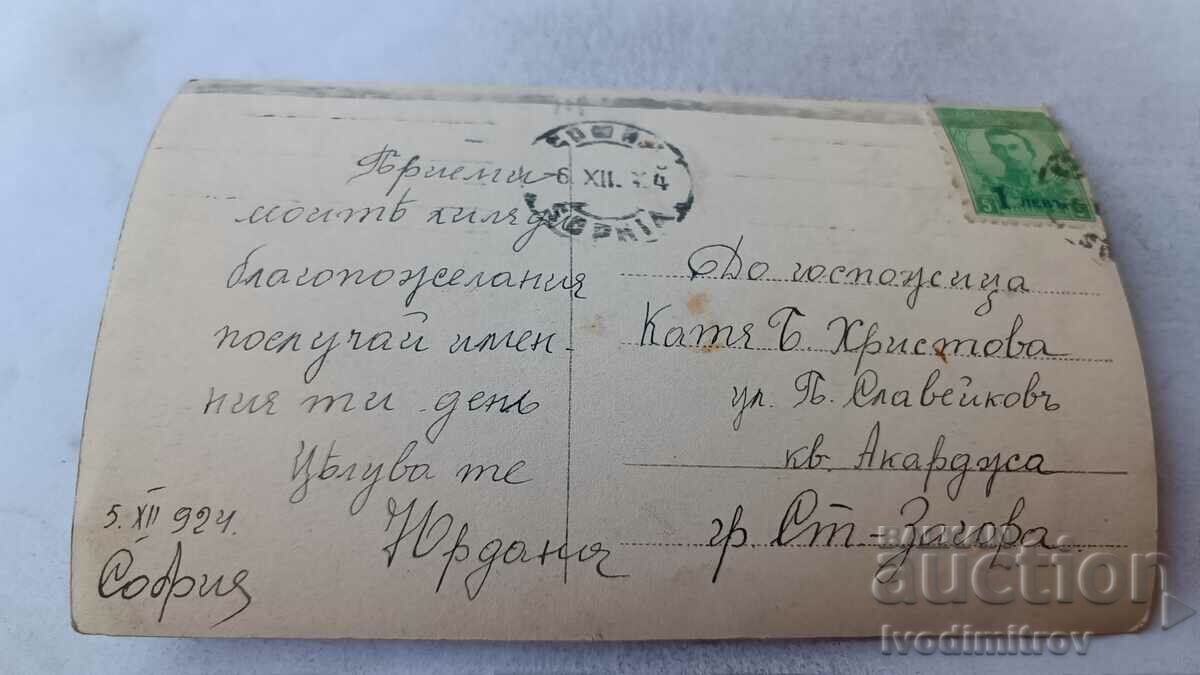 Приеми
моитѣ хиляди
благопожелания
послучай имен-
ния ти день
Цѣлува те
Юрдания
5. XII 924.
София
СОФИЯ
6. XII. 24
SOPHIA
1 ЛЕВЪ
До госпожица
Катя Б. Христова
ул. П. Славейковъ
кв. Акардуса
гр. Ст-Загора
auction
Ivodimitrov